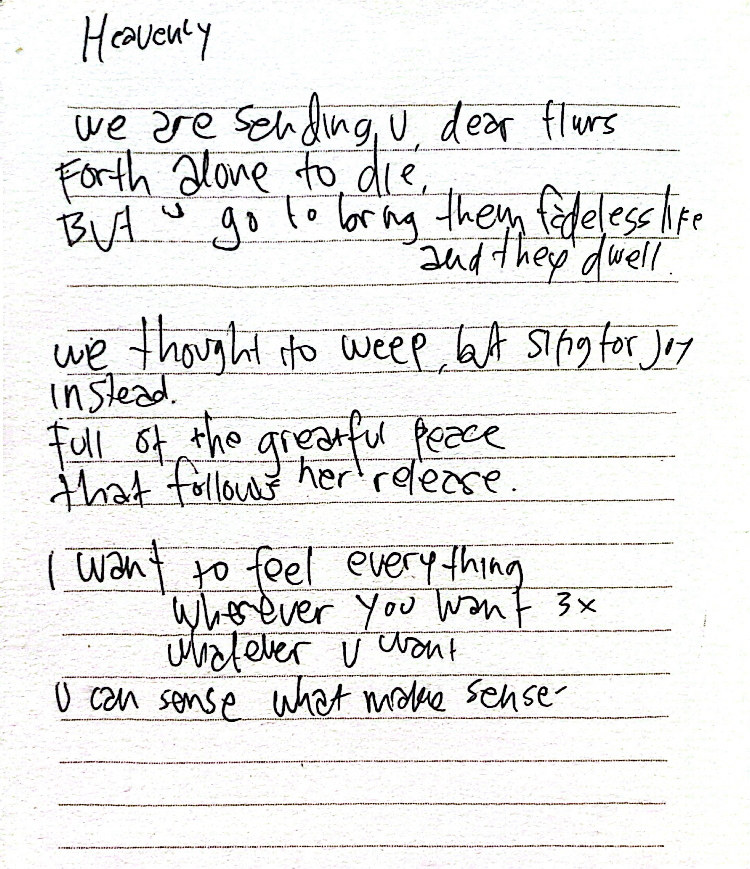 Heavenly
we are sending U, dear flwrs
Forth alone to die,
But u go to bring them fadeless life
and they dwell.
we thought to weep, but sing for joy
instead.
full of the greatful peace
that follows her release.
I want to feel everything
wherever you want 3x
whatever U want
U can sense what make sense